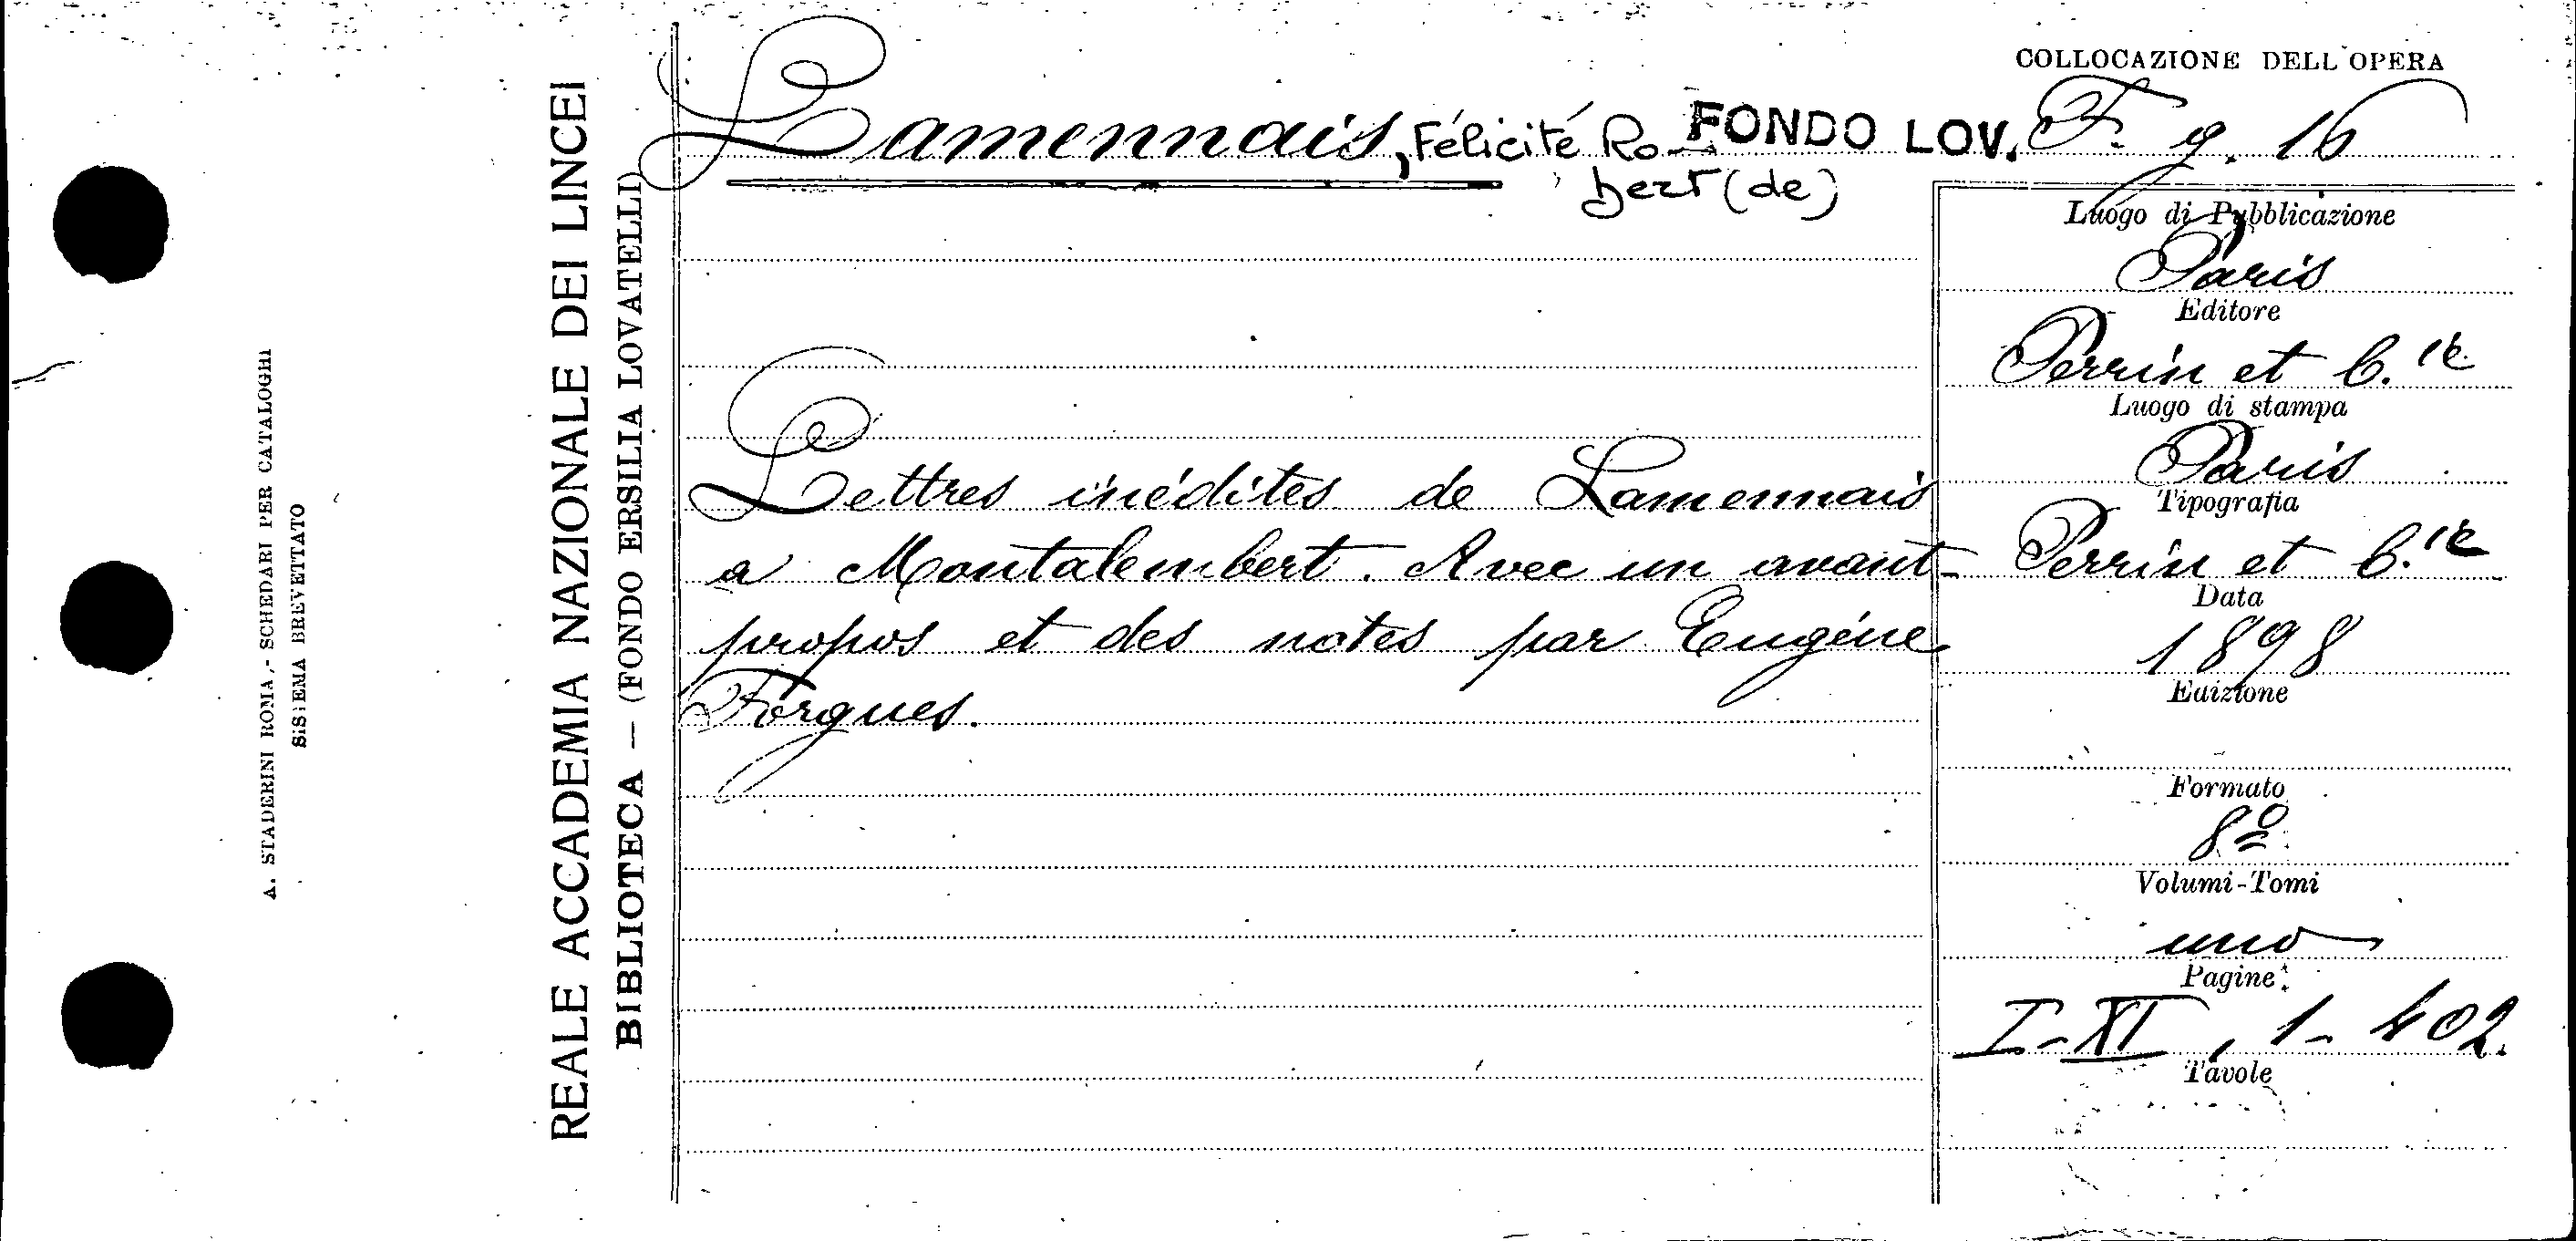 COLLOCAZIONE DELL'OPERA
Lamennais, Félicité Ro- FONDO LOV. F. g. 16
bert (de)
Lettres inédites de Lamennais
a Montalembert. Avec un avant-
propos et des notes par Eugéne
Forgues.
Luogo di Pubblicazione
Paris
Editore
Perrin et C.ie
Luogo di stampa
Paris
Tipografia
Perrin et C.ie
Data
1898
Edizione
Formato
8º
Volumi-Tomi
uno
Pagine
I-XI, 1-402.
Tavole
REALE ACCADEMIA NAZIONALE DEI LINCEI
BIBLIOTECA — (FONDO ERSILIA LOVATELLI)
A. STADERINI ROMA,- SCHEDARI PER CATALOGHI
SISTEMA BREVETTATO